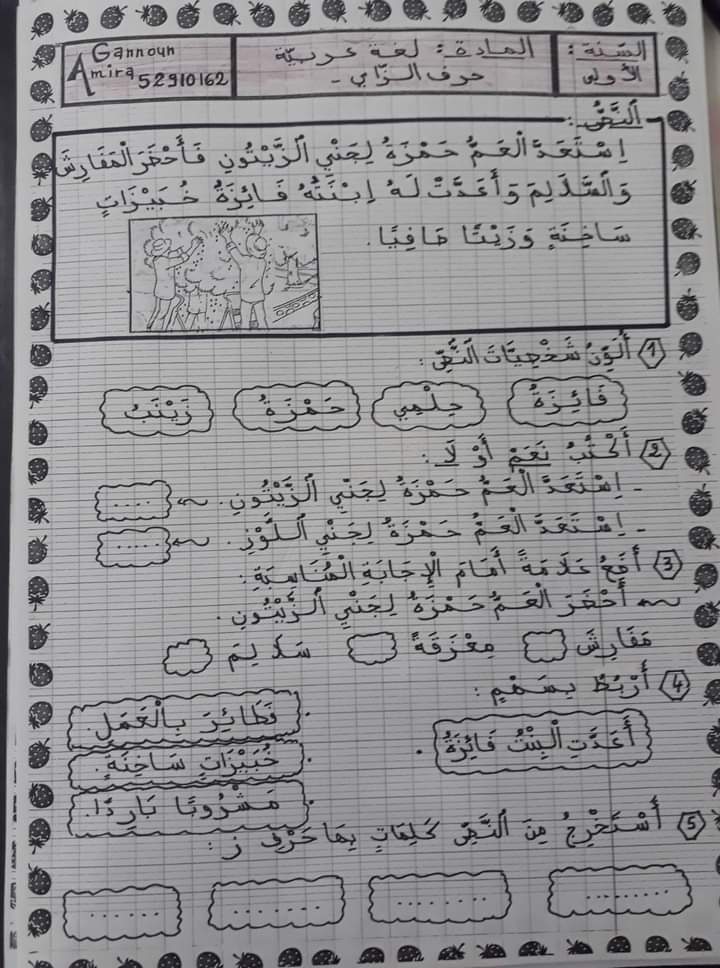 السّنة : الأولى
المادة : لغة عربيّة
حرف الـزّاي -
Gannoun
Amira 52910162
اَلنَّصُّ :
اِسْتَعَدَّ اَلْعَمُّ حَمْزَةُ لِجَنْيِ اَلزَّيْتُونِ فَأَحْضَرَ اَلْمَفَارِشَ
وَالسَّلَالِيمَ وَأَعَدَّتْ لَهُ اِبْنَتُهُ فَائِزَةُ خُبَيْزَاتٍ
سَاخِنَةٍ وَزَيْتًا صَافِيًا.
1 أُلَوِّنُ شَخْصِيَّاتِ اَلنَّصِّ :
فَائِزَةُ
حِلْمِي
حَمْزَةُ
زَيْنَبُ
2 أَكْتُبُ نَعَمْ أَوْ لَا :
- اِسْتَعَدَّ اَلْعَمُّ حَمْزَةُ لِجَنْيِ اَلزَّيْتُونِ. .....
- اِسْتَعَدَّ اَلْعَمُّ حَمْزَةُ لِجَنْيِ اَللَّوْزِ. .....
3 أَضَعُ عَلَامَةً أَمَامَ الإِجَابَةِ الْمُنَاسِبَةِ :
أَحْضَرَ الْعَمُّ حَمْزَةُ لِجَنْيِ اَلزَّيْتُونِ.
مَفَارِشَ
مِعْزَقَةً
سَلَالِيمَ
4 أَرْبِطُ بِسَهْمٍ :
أَعَدَّتِ الْبِنْتُ فَائِزَةُ .
. فَطَائِرَ بِالْعَسَلِ.
. خُبَيْزَاتٍ سَاخِنَةٍ.
. مَشْرُوبًا بَارِدًا.
5 أَسْتَخْرِجُ مِنَ اَلنَّصِّ كَلِمَاتٍ بِهَا حَرْفِ ز :
.........
.......
.......
......